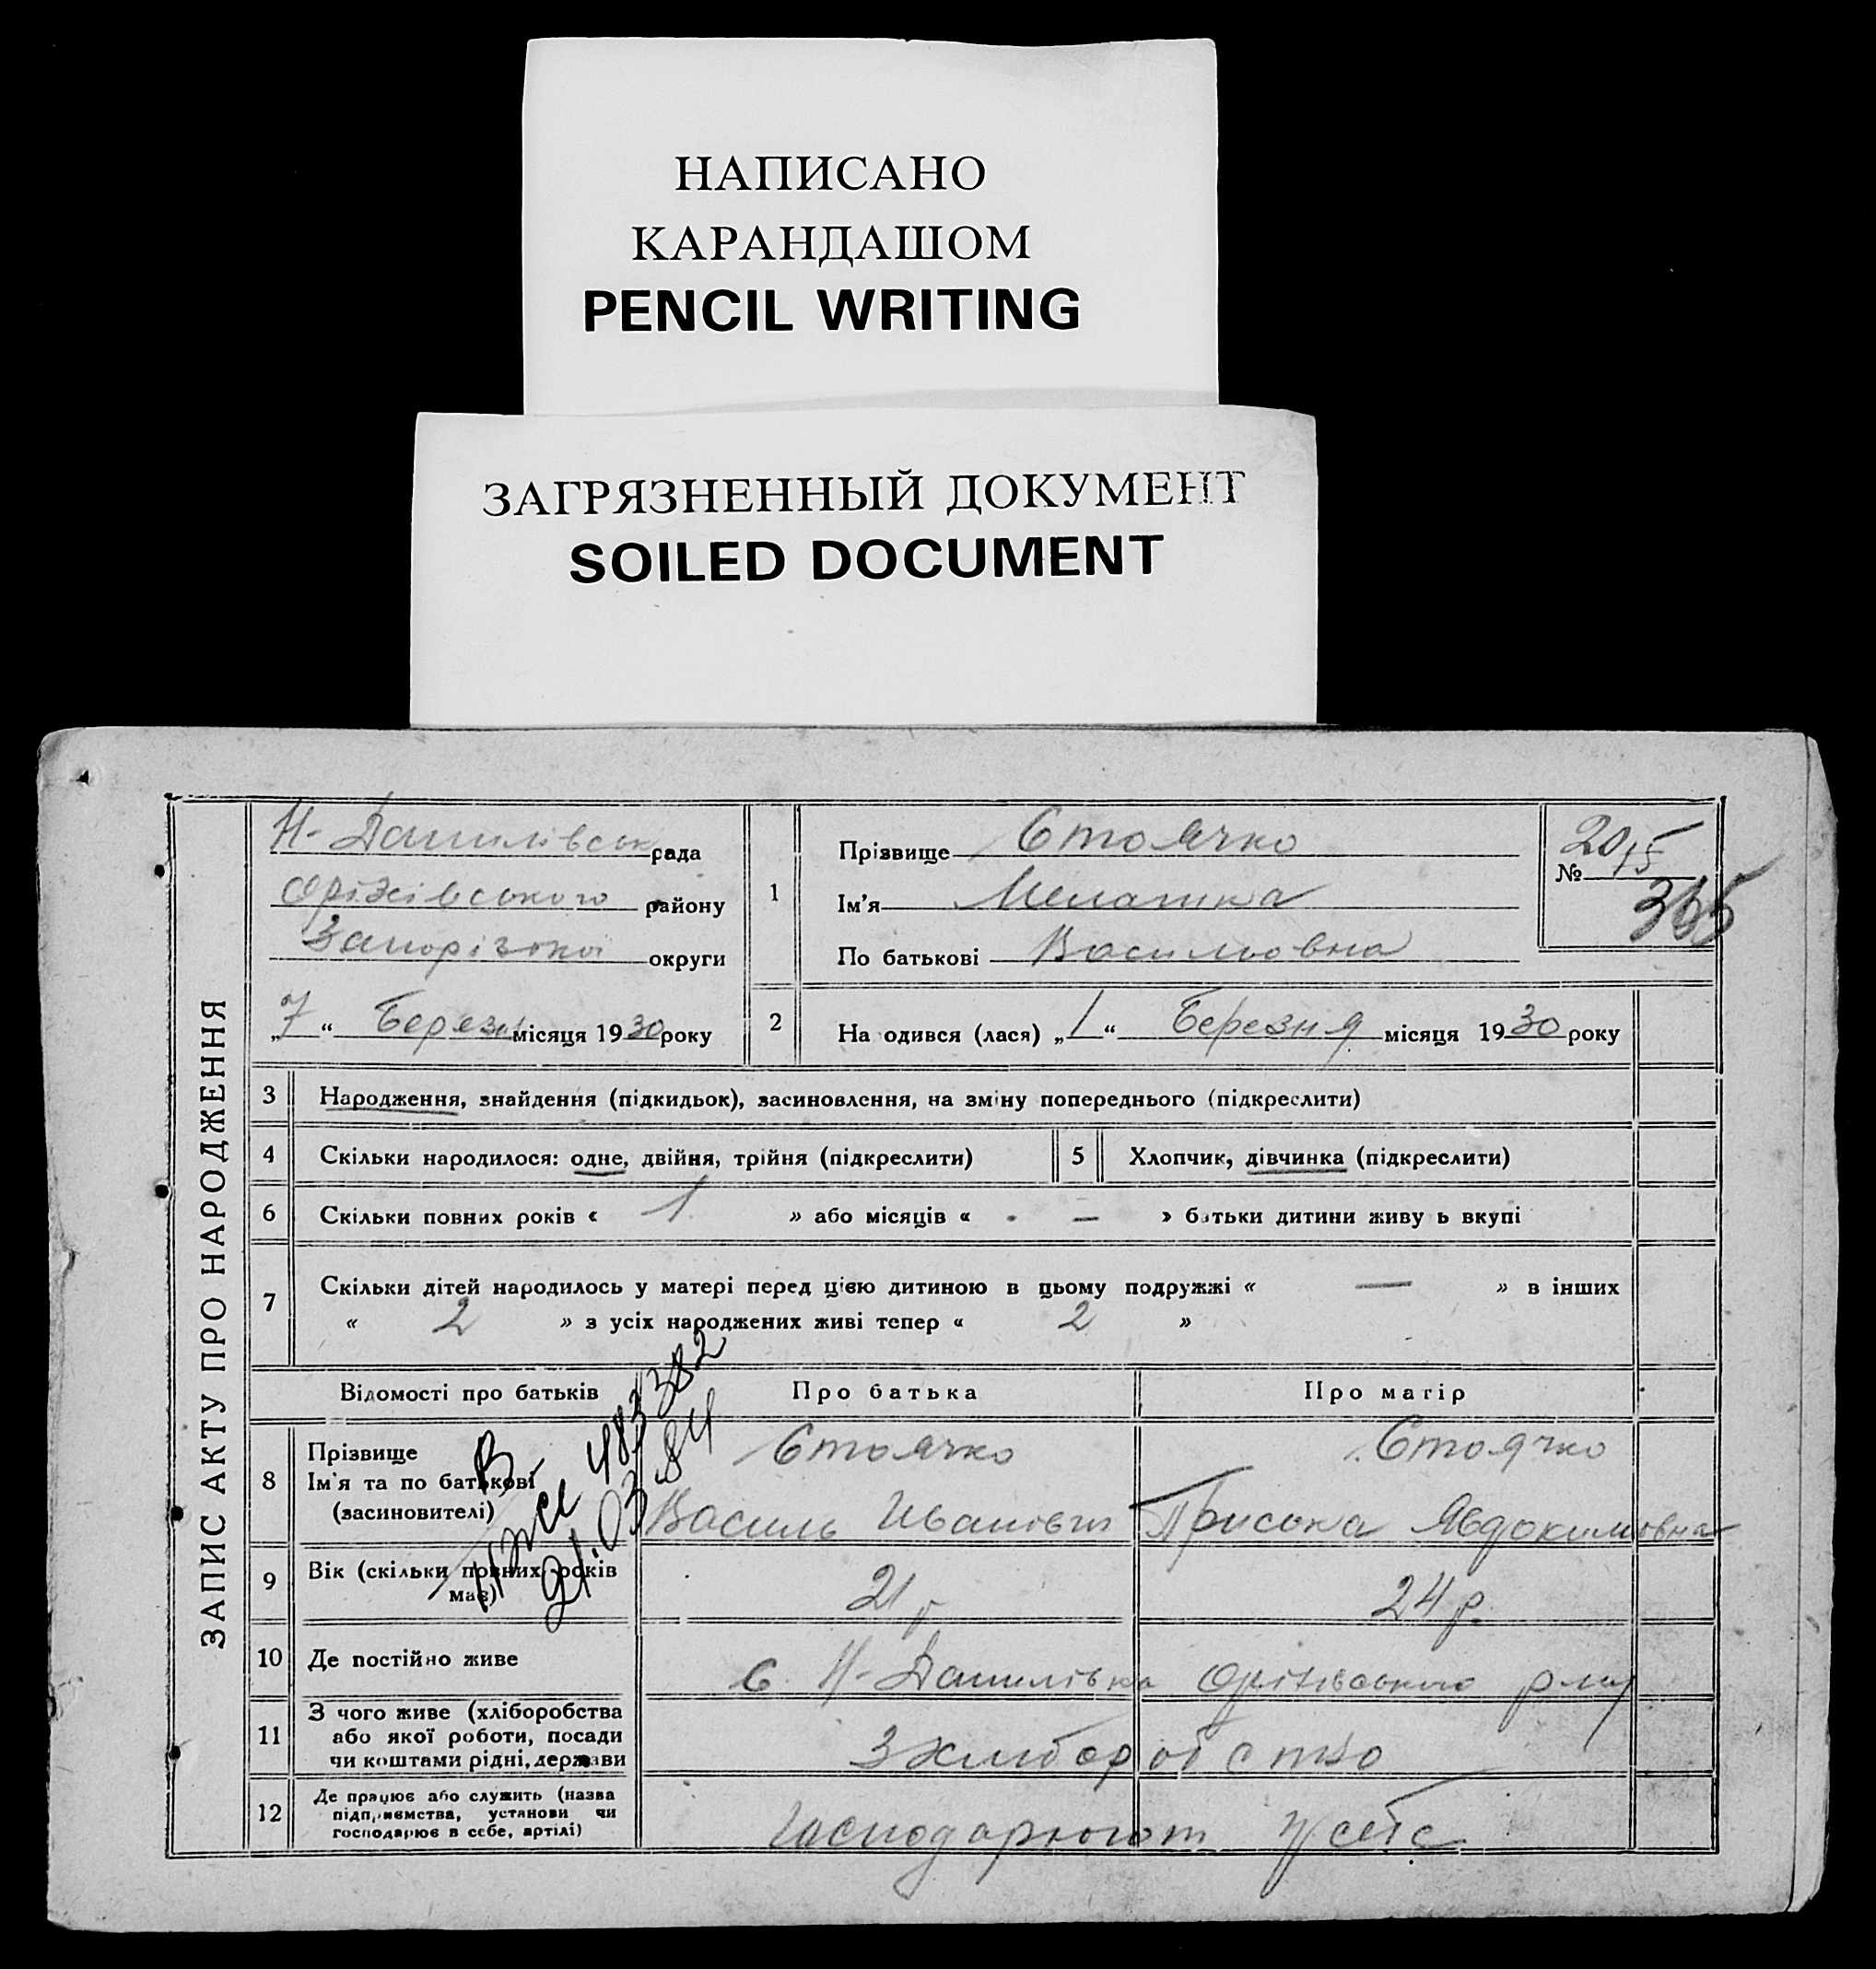 НАПИСАНО
КАРАНДАШОМ
PENCIL WRITING
ЗАГРЯЗНЕННЫЙ ДОКУМЕНТ
SOILED DOCUMENT
ЗАПИС АКТУ ПРО НАРОДЖЕННЯ
Н-Данилівськ рада
Оріхівського району
Запорізької округи
„7“ Березн місяця 1930 року
1
Прізвище Стоячко
Ім'я Мелашка
По батькові Васильовна
20/15
№
365
2
На одився (лася) „1“ Березня місяця 1930 року
3 Народження, знайдення (підкидьок), засиновлення, на зміну попереднього (підкреслити)
4 Скільки народилося: одне, двійня, трійня (підкреслити)
5 Хлопчик, дівчинка (підкреслити)
6 Скільки повних років « 1 » або місяців « — » батьки дитини живу ь вкупі
7 Скільки дітей народилось у матері перед цією дитиною в цьому подружжі « — » в інших
« 2 » з усіх народжених живі тепер « 2 »
Відомості про батьків Про батька Про матір
8 Прізвище
Ім'я та по батькові
(засиновителі)
Стоячко
Василь Иванович
Стоячко
Приська Явдокимовна
483382
21.03.84
9 Вік (скільки повних років
має)
21 р
24 р.
10 Де постійно живе
с. Н-Данилівка Оріхівського р-ну
11 З чого живе (хліборобства
або якої роботи, посади
чи коштами рідні, держави
З хліборобство
12 Де працює або служить (назва
підприємства, установи чи
господарює в себе, артілі)
Господарюют у себе